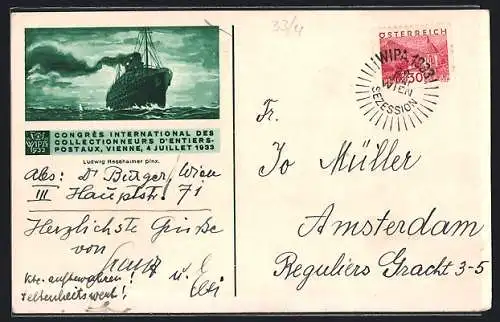 33/4
ÖSTERREICH
30
WIPA 1933
WIEN
SEZESSION
WIPA
1933
CONGRÈS INTERNATIONAL DES
COLLECTIONNEURS D'ENTIERS-
POSTAUX, VIENNE, 4 JUILLET 1933
Ludwig Hesshaimer pinx.
Abs: Dr Burger, Wien
III Hauptstr. 71
Herzlichste Grüße
von
u.
Kte. aufbewahren!
Seltenheitswert!
Fr.
Jo Müller
Amsterdam
Reguliers Gracht 3-5